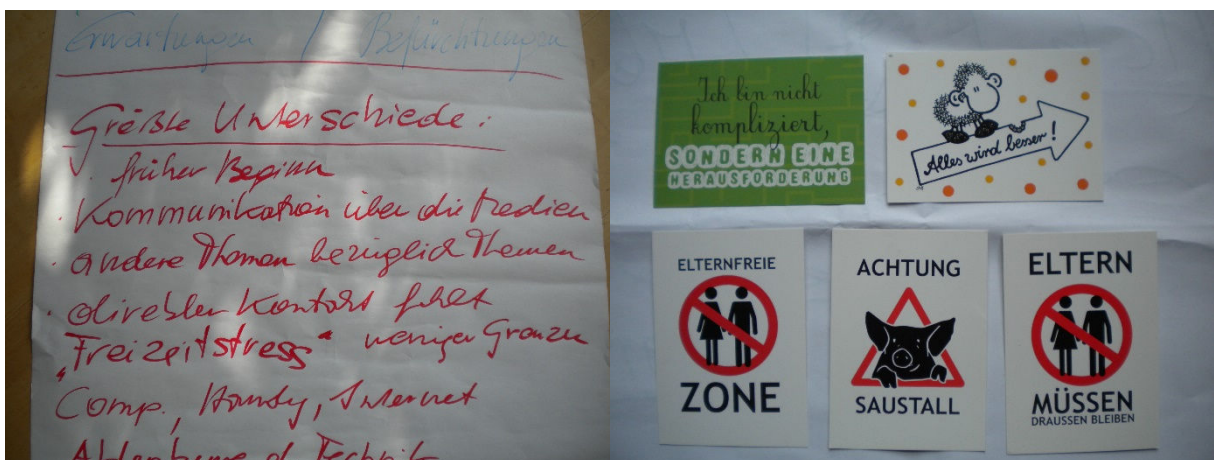 Erwartungen / Befürchtungen
Größte Unterschiede:
früher Beginn
· Kommunikation über die Medien
· andere Themen bezüglich Themen
· direkter Kontakt fehlt
„Freizeitstress“ weniger Grenzen
Comp., Handy, Internet
Ich bin nicht
kompliziert,
SONDERN EINE
HERAUSFORDERUNG
Alles wird besser!
ELTERNFREIE
ZONE
ACHTUNG
SAUSTALL
ELTERN
MÜSSEN
DRAUSSEN BLEIBEN